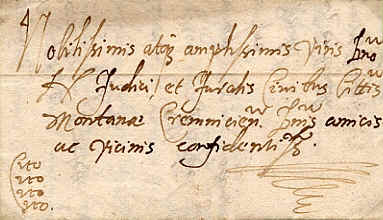 Nobilissimis atq; amplissimis Viris Dno
Judici, et Juratis Civibus Cittis
Montanae Cremnicien. Dnis amicis
ac Vicinis confidentiss.
Cito
cito
cito
cito.